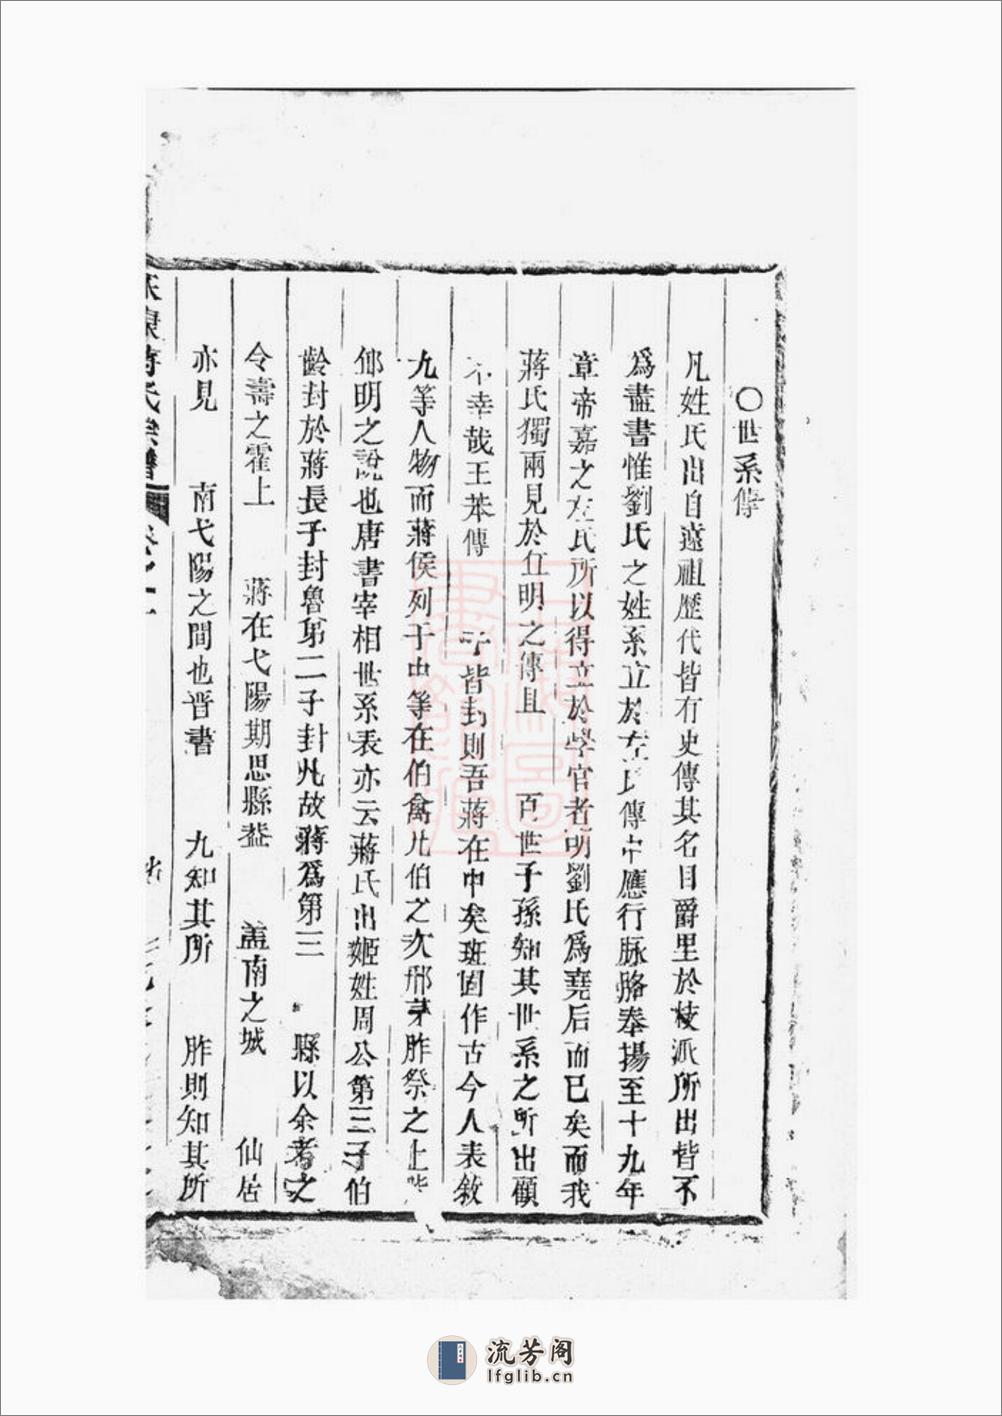 ○世系傳
凡姓氏出自遠祖歷代皆有史傳其名目爵里於枝派所出皆不
爲盡書惟劉氏之姓系立於左氏傳中應行脉胳奉揚至十九年
章帝嘉之左氏所以得立於學官者明劉氏爲堯后而已矣而我
蔣氏獨兩見於丘明之傳且 百世子孫知其世系之所出顧
不幸哉王莽傳 皆封則吾蔣在中矣班固作古今人表敘
九等人物而蔣侯列于中等在伯禽凡伯之次邢茅胙祭之上
邱明之說也唐書宰相世系表亦云蔣氏出姬姓周公第三子伯
齡封於蔣長子封魯第二子封凡故蔣爲第三 縣以余考之
令壽之霍上 蔣在弋陽期思縣葢 盖南之城 仙居
亦見 南弋陽之間也晋書 九知其所 胙則知其所
蔣氏宗譜
流芳阁
lfglib.cn